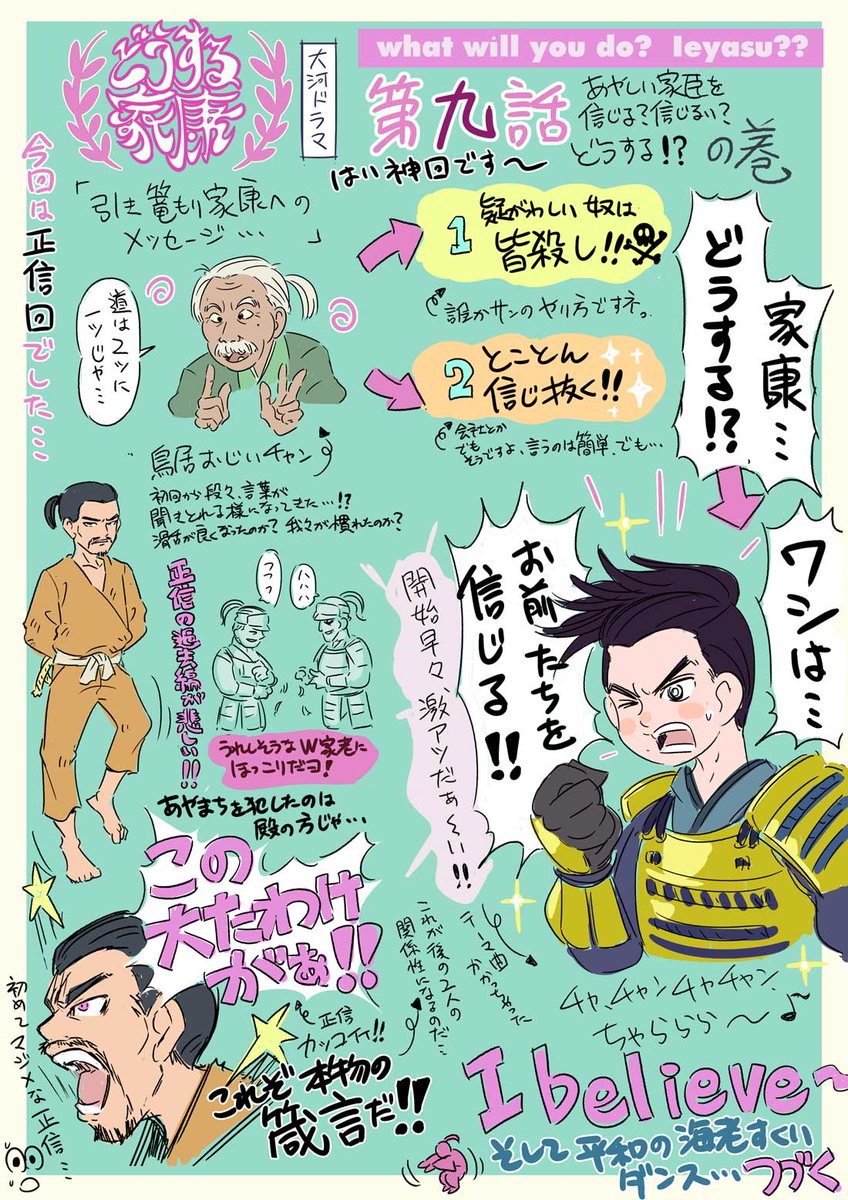 what will you do? Ieyasu??
どうする
家康
大河ドラマ
第九話
はい神回です〜
あやしい家臣を
信じる？信じない？
どうする!?
の巻
今回は正信回でした…
「引き篭もり家康への
メッセージ…」
道は2ツに
一ツじゃ…
鳥居おじいチャン
初回から段々、言葉が
聞きとれる様になってきた…!?
滑舌が良くなったのか？我々が慣れたのか？
1
疑がわしい奴は
皆殺し!!
誰かサンのヤリ方ですネ。
2
とことん
信じ抜く!!
会社とか
でも
そうですよ、言うのは簡単、でも…
家康…
どうする!?
ワシは…
お前たちを
信じる!!
開始早々、激アツだぁ〜い!!
正信の過去編が悲しい!!
フフフ
ハハハ
うれしそうなW家老に
ほっこりだヨ！
あやまちを犯したのは
殿の方じゃ…
この
大たわけ
がぁ!!
正信
カッコイイ!!
これぞ本物の
箴言だ!!
初めてマジメな正信…
これが後の2人の
関係性になるのだ…
テーマ曲
かかっちゃった
チャ、チャンチャチャン、
ちゃららら〜♪
I believe~
そして平和の海老すくい
ダンス…つづく